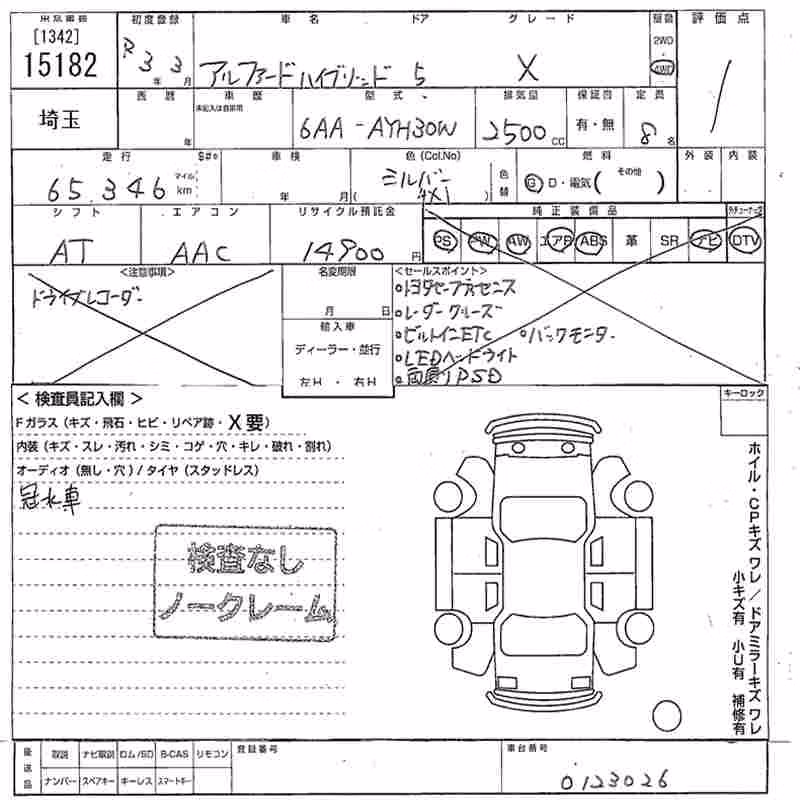 東京書館
[1342]
15182
初度登録
R 3 年 3 月
車名 ドア グレード
アルファードハイブリッド 5 X
2WD
4WD
評価点
/
埼玉
西暦
年
車歴
未記入は自家用
型式
6AA-AYH30W
排気量
2500 CC
保証書
有・無
定員
8名
走行
65,346
マイル
km
車検
年 月
色(Col.No)
シルバー
4X1
色替
燃料
G D・電気( その他 )
外装 内装
シフト
AT
エアコン
AAC
リサイクル預託金
14900 円
純正装備品
PS PW AW エアB ABS 革 SR ナビ DTV
<注意事項>
ドライブレコーダー
名変期限
月 日
輸入車
ディーラー・並行
左H・右H
<セールスポイント>
トヨタセーフティセンス
レーダークルーズ
ビルトインETC バックモニター
LEDヘッドライト
両側PSD
<検査員記入欄>
Fガラス(キズ・飛石・ヒビ・リペア跡・X要)
内装(キズ・スレ・汚れ・シミ・コゲ・穴・キレ・破れ・割れ)
オーディオ(無し・穴)/タイヤ(スタッドレス)
冠水車
検査なし
ノークレーム
キーロック
ホイル・CPキズワレ/ドアミラーキズワレ
小キズ有 小U有 補修有
後送品
取説 ナビ取説 ロム/SD B-CAS リモコン
ナンバー スペアキー キーレス スマートキー
登録番号
車台番号
0123026